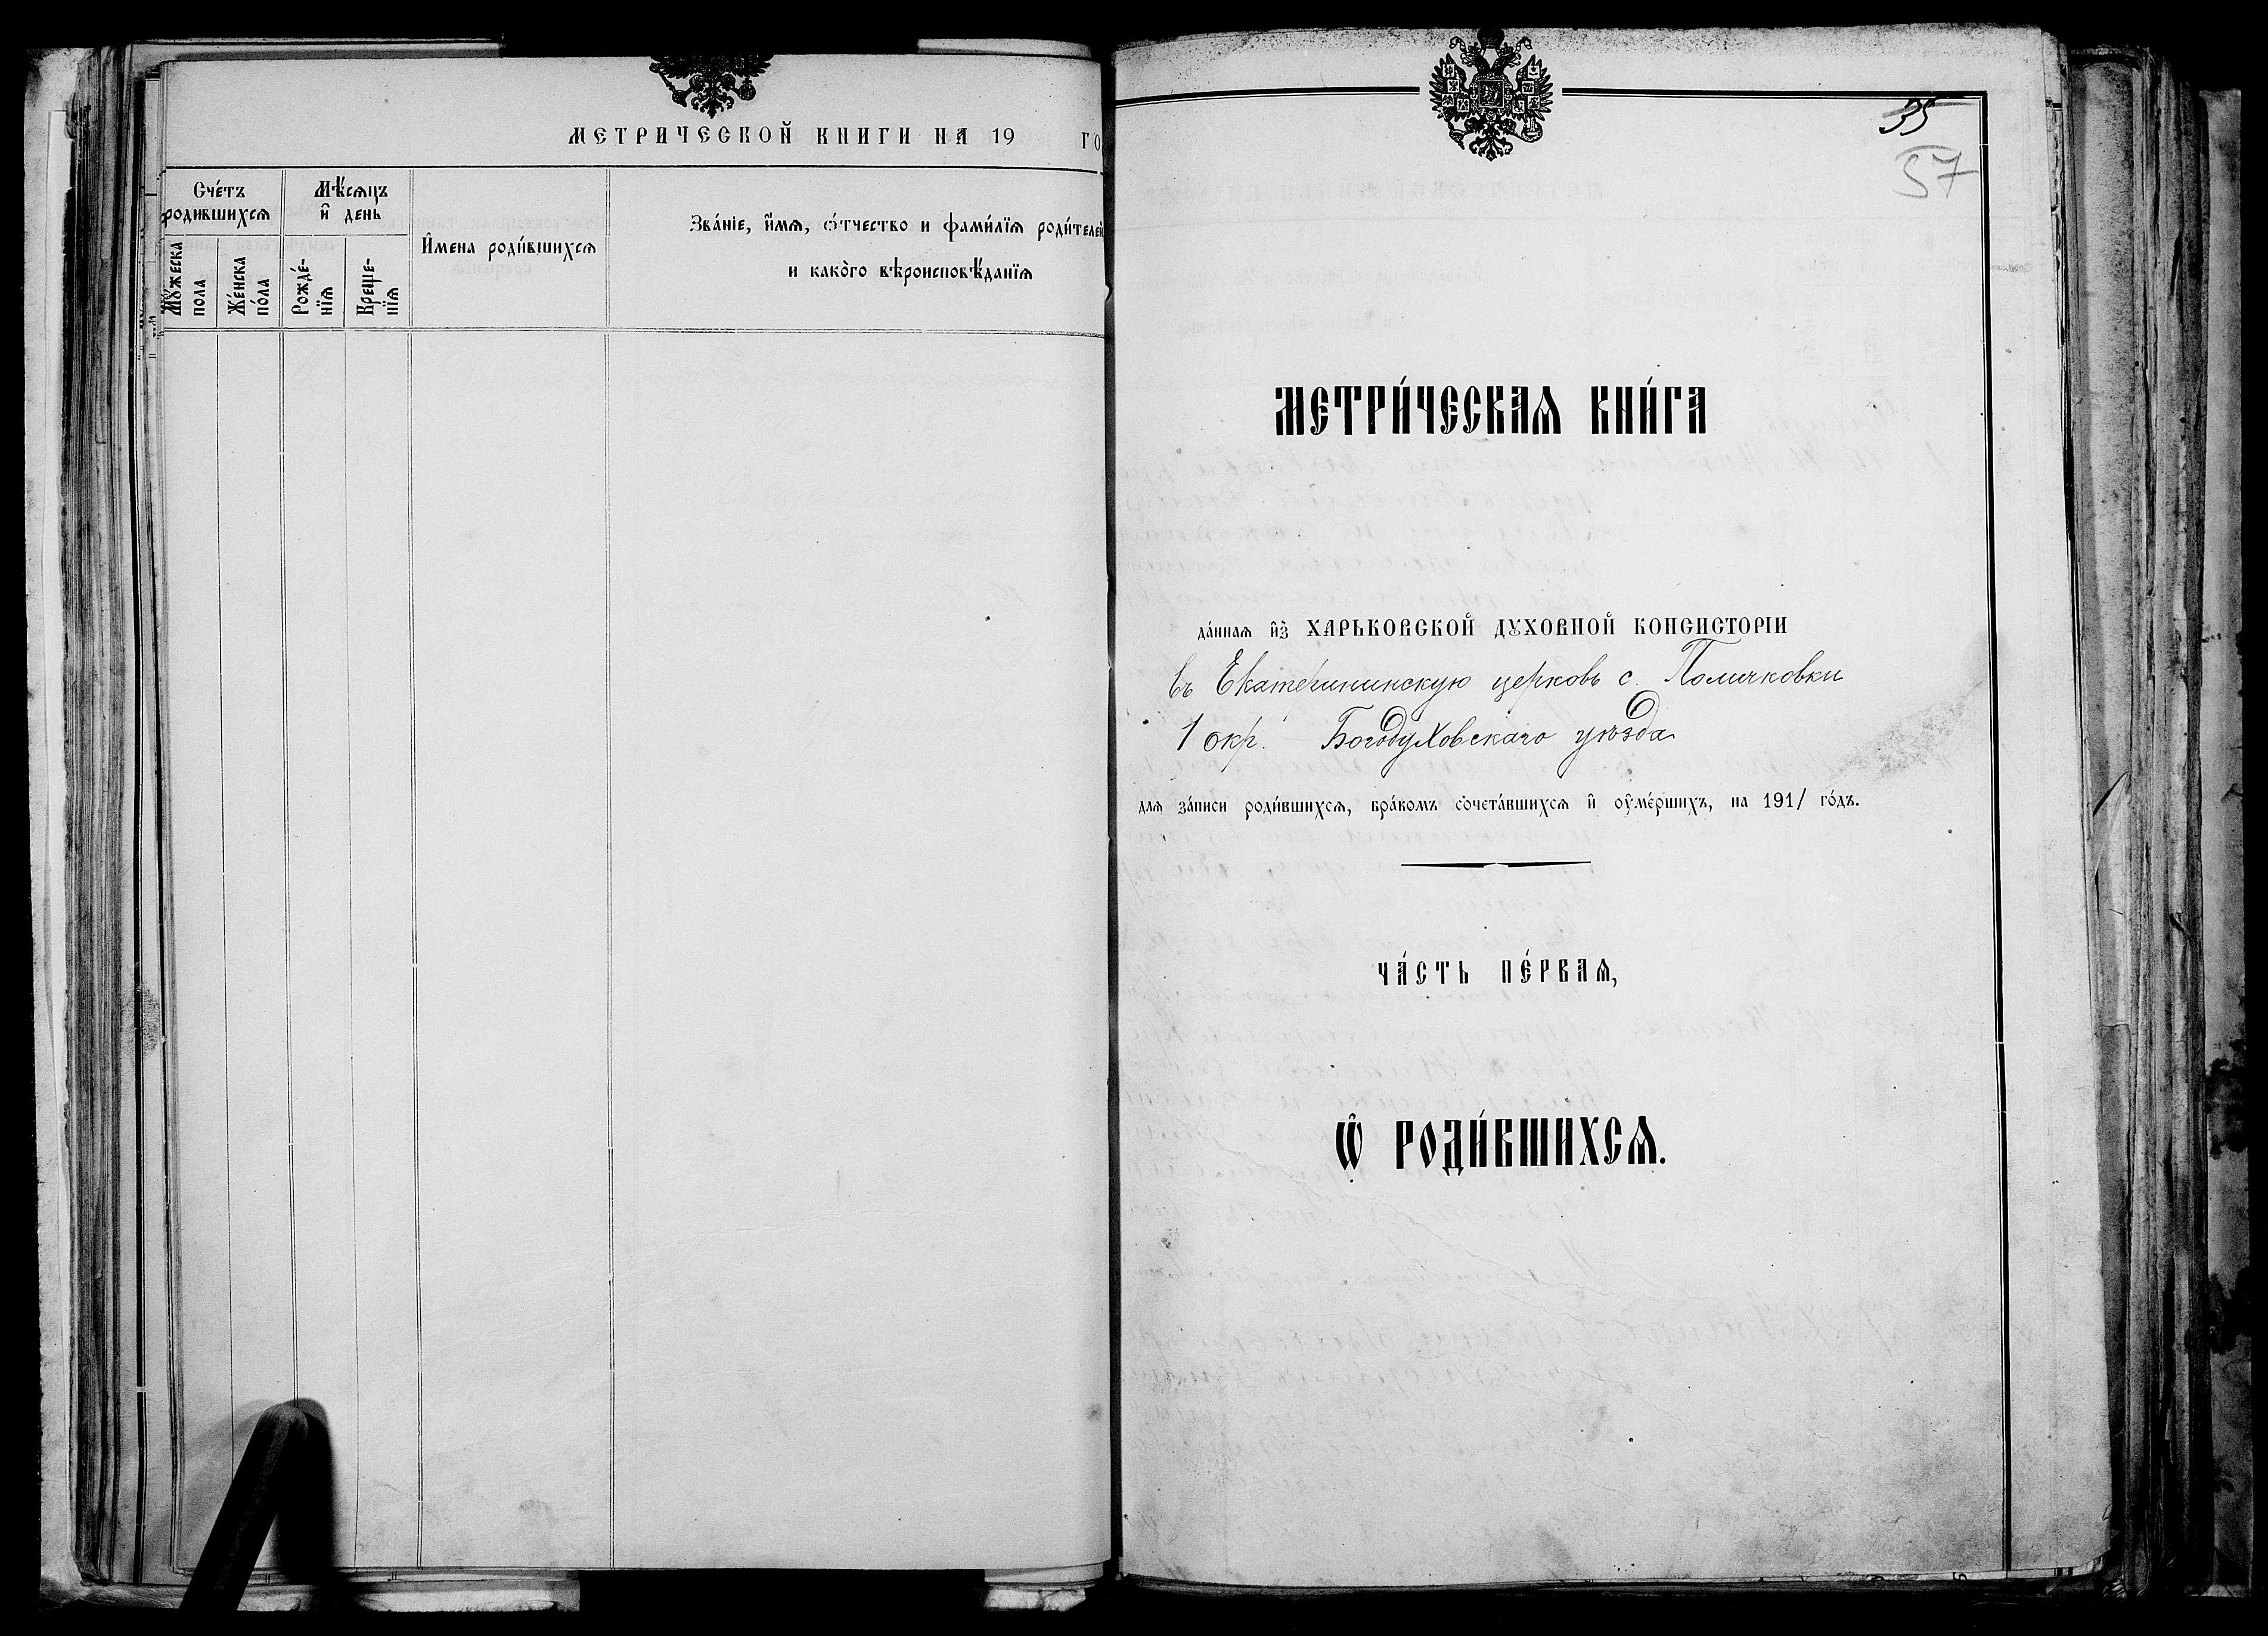 МЕТРИЧЕСКОЙ КНИГИ НА 19 ГО
Сче́тъ родившихсѧ
Мѣ́сѧцъ и҆ день
И҆мена роди́вшихсѧ
Зва́нїе, и҆́мѧ, ѻ҆́тчество и фами́лїѧ роди́телей
и како́го вѣроисповѣ́данїѧ
Мꙋ́жеска пола
Же́нска по́ла
Рожде́-нїѧ
Креще-нїѧ
35
57
МЕТРИ́ЧЕСКАѦ КНИ́ГА
да́ннаѧ и҆з̾ ХАРЬКОВСКОЙ ДꙊХОВНОЙ КОНСИСТОРІИ
въ Екатерининскую церковь с.
1 окр. Богодуховскаго уѣзда
длѧ за́писи роди́вшихсѧ, бра́комъ сочета́вшихсѧ и҆ ѹ҆ме́ршихъ, на 1911 го́дъ.
ЧА́СТЬ ПЕ́РВАѦ,
Ѽ РОДИ́ВШИХСѦ.